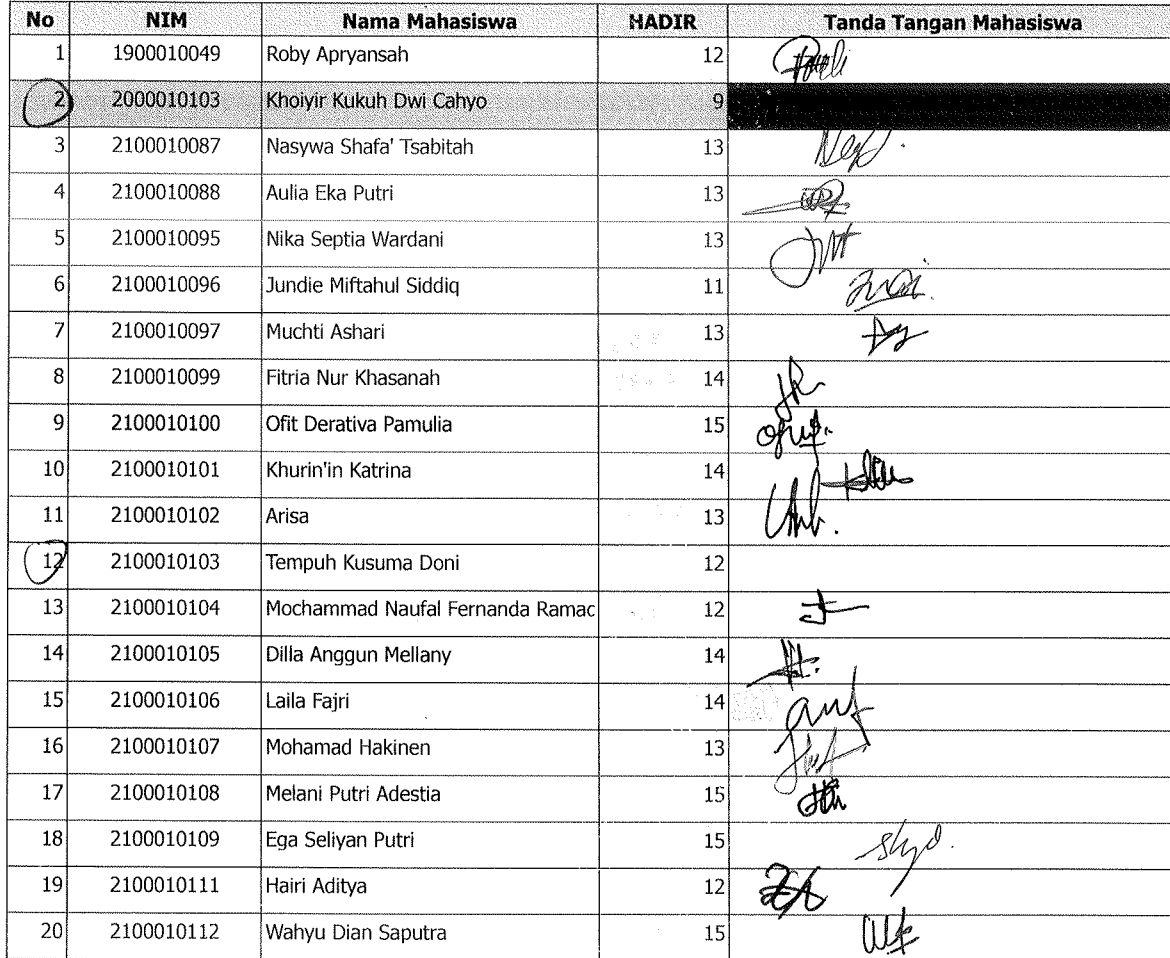 No NIM Nama Mahasiswa HADIR Tanda Tangan Mahasiswa
1 1900010049 Roby Apryansah 12
2 2000010103 Khoiyir Kukuh Dwi Cahyo 9
3 2100010087 Nasywa Shafa' Tsabitah 13
4 2100010088 Aulia Eka Putri 13
5 2100010095 Nika Septia Wardani 13
6 2100010096 Jundie Miftahul Siddiq 11
7 2100010097 Muchti Ashari 13
8 2100010099 Fitria Nur Khasanah 14
9 2100010100 Ofit Derativa Pamulia 15
10 2100010101 Khurin'in Katrina 14
11 2100010102 Arisa 13
12 2100010103 Tempuh Kusuma Doni 12
13 2100010104 Mochammad Naufal Fernanda Ramac 12
14 2100010105 Dilla Anggun Mellany 14
15 2100010106 Laila Fajri 14
16 2100010107 Mohamad Hakinen 13
17 2100010108 Melani Putri Adestia 15
18 2100010109 Ega Seliyan Putri 15
19 2100010111 Hairi Aditya 12
20 2100010112 Wahyu Dian Saputra 15